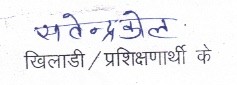 सतेन्द्र कोल
खिलाडी / प्रशिक्षणार्थी के